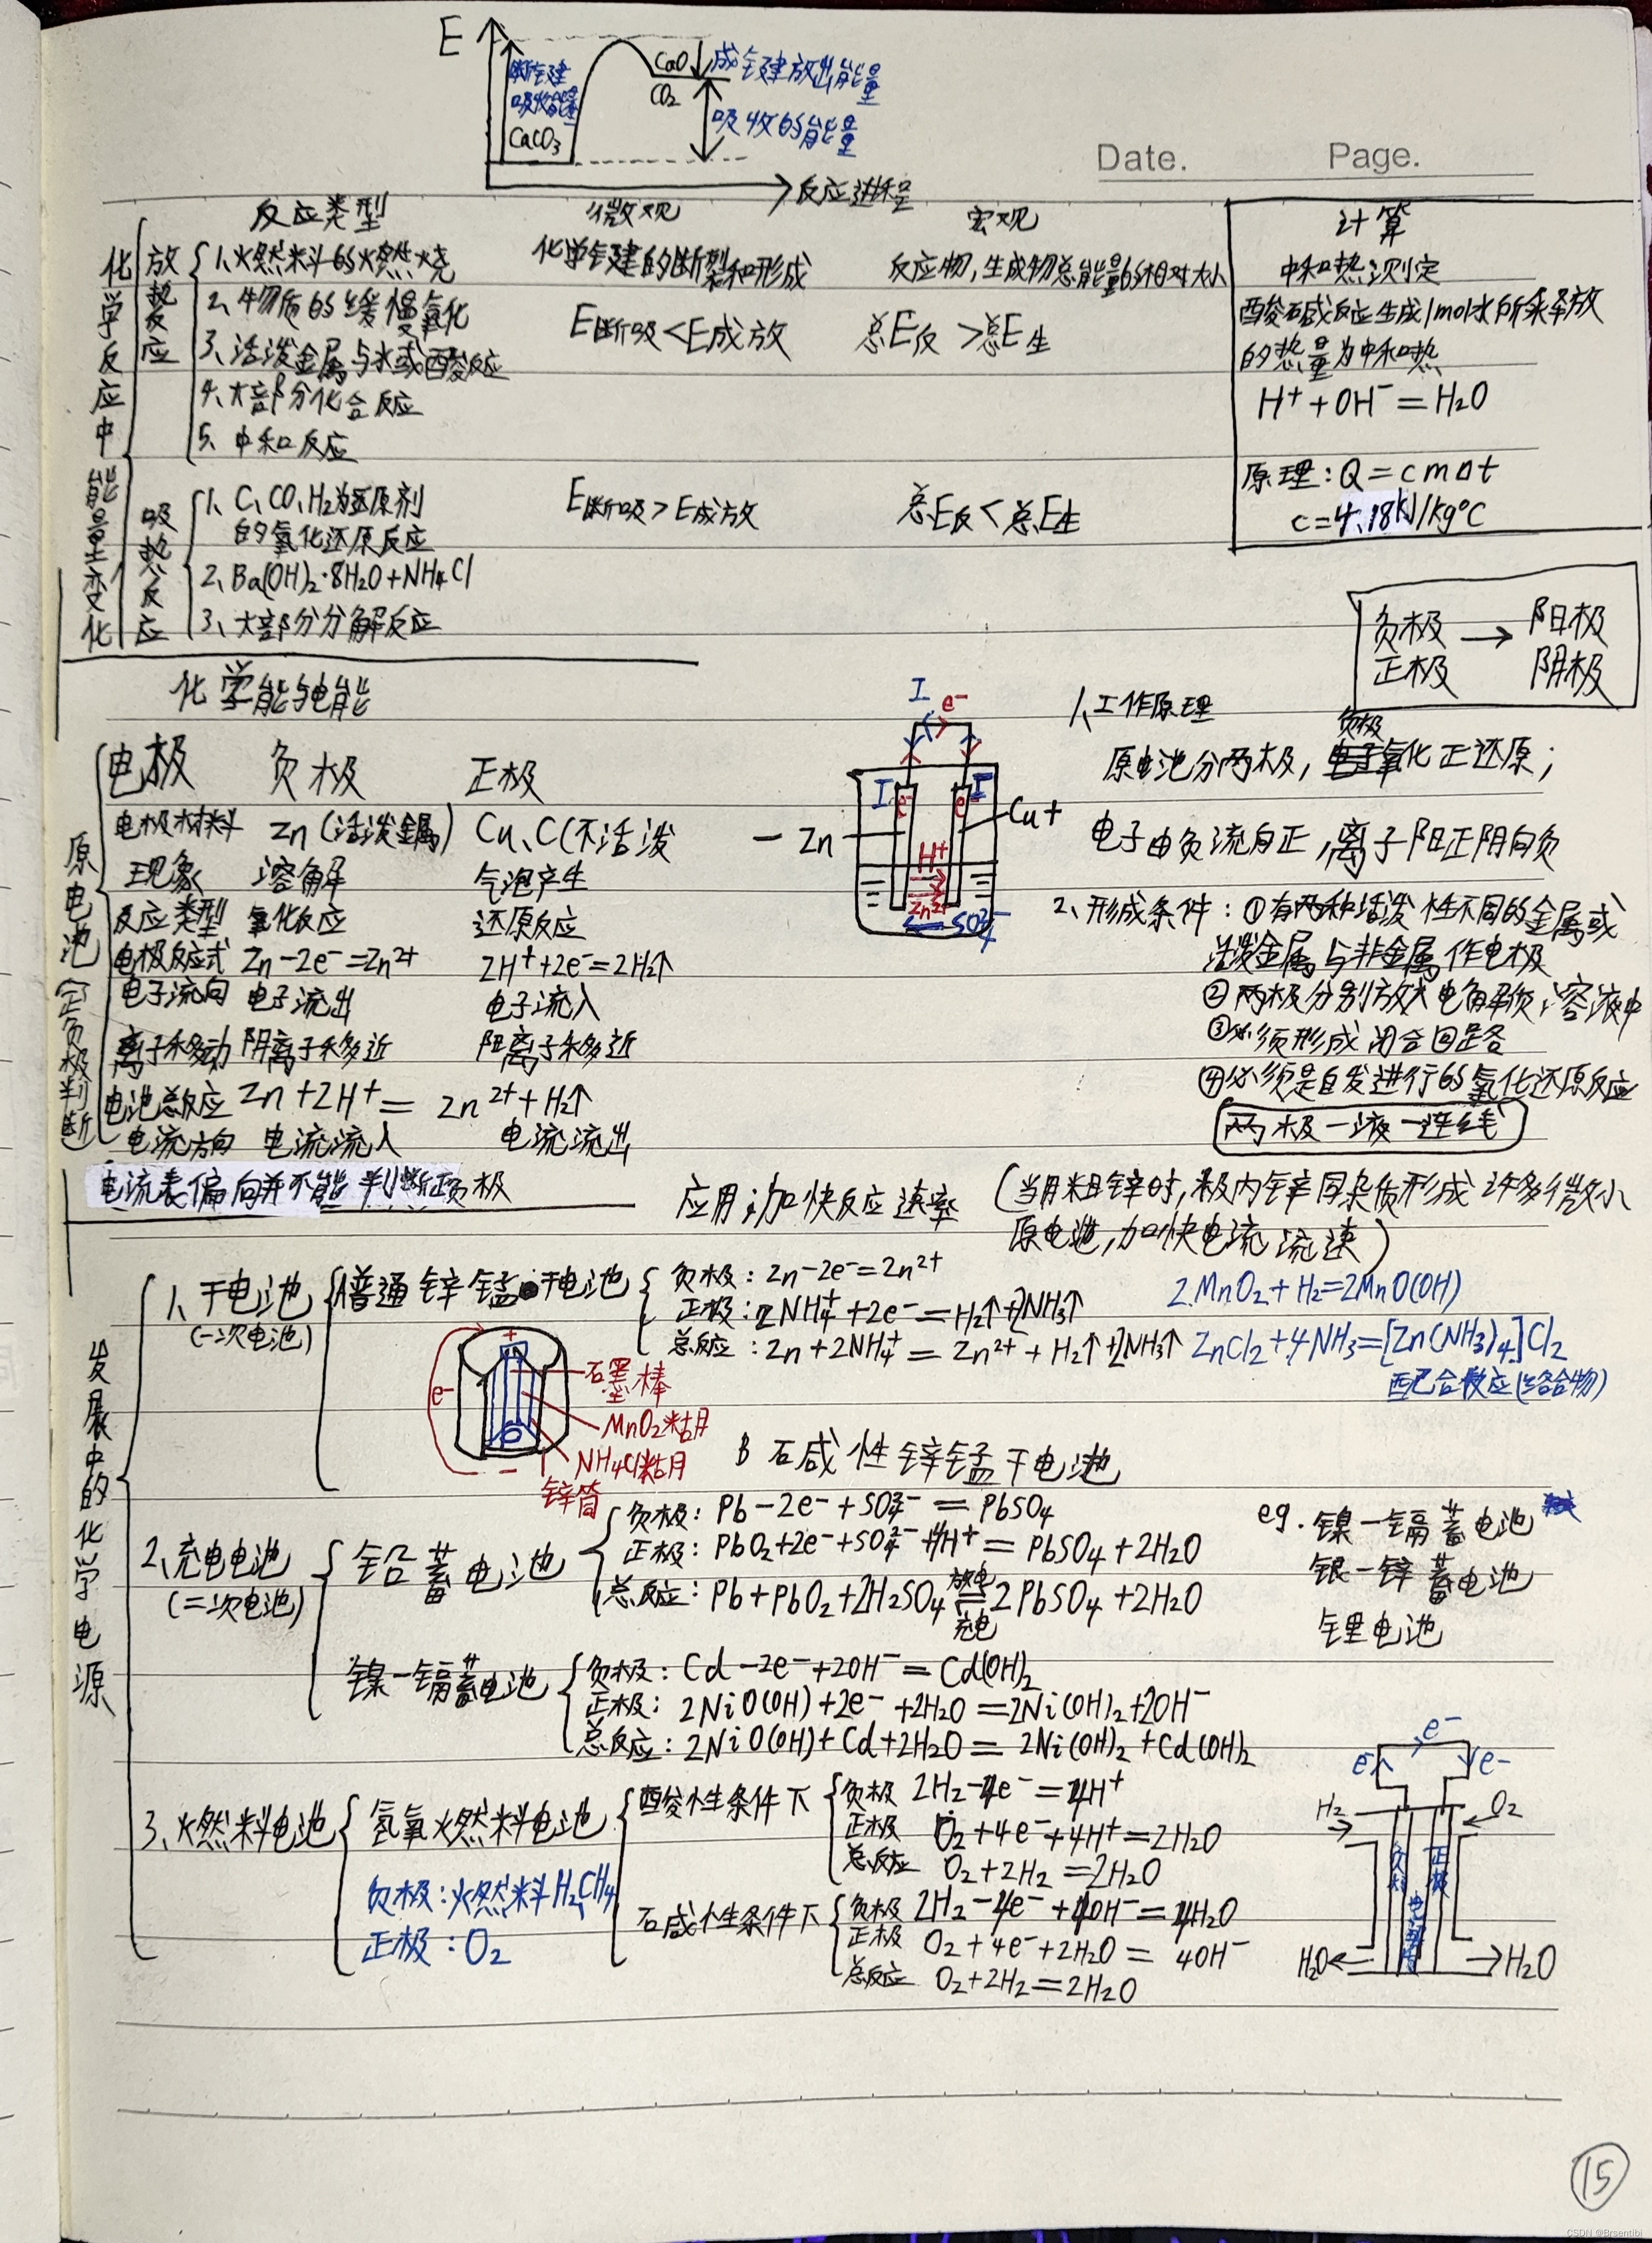 E
断键
吸收能量
CaCO₃
CaO
CO₂
成键放出能量
吸收的能量
反应进程
Date. Page.
反应类型 微观 宏观
化学反应中能量变化
放热反应
1、燃料的燃烧
2、物质的缓慢氧化
3、活泼金属与水或酸反应
4、大部分化合反应
5、中和反应
化学键的断裂和形成
E断吸<E成放
反应物,生成物总能量的相对大小
总E反>总E生
吸热反应
1、C、CO、H₂为还原剂
的氧化还原反应
2、Ba(OH)₂·8H₂O+NH₄Cl
3、大部分分解反应
E断吸>E成放
总E反<总E生
计算
中和热测定
酸碱反应生成1mol水所释放
的热量为中和热
H⁺+OH⁻=H₂O
原理:Q=cmΔt
c=4.18kJ/kg℃
负极→阳极
正极 阴极
化学能与电能
原电池(正负极判断)
电极 负极 正极
电极材料 Zn(活泼金属) Cu、C(不活泼
现象 溶解 气泡产生
反应类型 氧化反应 还原反应
电极反应式 Zn-2e⁻=Zn²⁺ 2H⁺+2e⁻=2H₂↑
电子流向 电子流出 电子流入
离子移动 阴离子移近 阳离子移近
电池总反应 Zn+2H⁺= Zn²⁺+H₂↑
电流方向 电流流入 电流流出
电流表偏向并不能判断正负极
I e⁻
I e⁻ e⁻ I
-Zn
Cu+
H⁺
Zn²⁺
SO₄²⁻
1、工作原理
负极
原电池分两极,氧化正还原;
电子由负流向正,离子阳正阴向负
2、形成条件:①有两种活泼性不同的金属或
活泼金属与非金属作电极
②两极分别放入电解质溶液中
③必须形成闭合回路
④必须是自发进行的氧化还原反应
两极一液一连线
应用:加快反应速率 (当用粗锌时,极内锌同杂质形成许多微小
原电池,加快电流流速)
发展中的化学电源
1、干电池
(一次电池)
A普通锌锰干电池
负极:Zn-2e⁻=Zn²⁺
正极:2NH₄⁺+2e⁻=H₂↑+2NH₃↑
总反应:Zn+2NH₄⁺=Zn²⁺+H₂↑+2NH₃↑
2MnO₂+H₂=2MnO(OH)
ZnCl₂+4NH₃=[Zn(NH₃)₄]Cl₂
配合效应(络合物)
e⁻
+
石墨棒
MnO₂粘用
NH₄Cl粘用
-
锌筒
B 碱性锌锰干电池
2、充电电池
(二次电池)
铅蓄电池
负极:Pb-2e⁻+SO₄²⁻=PbSO₄
正极:PbO₂+2e⁻+SO₄²⁻+4H⁺=PbSO₄+2H₂O
总反应:Pb+PbO₂+2H₂SO₄ 放电 充电 2PbSO₄+2H₂O
eg.镍-镉蓄电池
银-锌蓄电池
锂电池
镍-镉蓄电池
负极:Cd-2e⁻+2OH⁻=Cd(OH)₂
正极:2NiO(OH)+2e⁻+2H₂O=2Ni(OH)₂+2OH⁻
总反应:2NiO(OH)+Cd+2H₂O=2Ni(OH)₂+Cd(OH)₂
3、燃料电池
氢氧燃料电池
负极:燃料H₂CH₄
正极:O₂
酸性条件下
负极 2H₂-4e⁻=4H⁺
正极 O₂+4e⁻+4H⁺=2H₂O
总反应 O₂+2H₂=2H₂O
碱性条件下
负极 2H₂-4e⁻+4OH⁻=4H₂O
正极 O₂+4e⁻+2H₂O=4OH⁻
总反应 O₂+2H₂=2H₂O
e⁻
e e⁻
H₂ O₂
负极 正极
H₂O H₂O
15
CSDN @Brsentibi